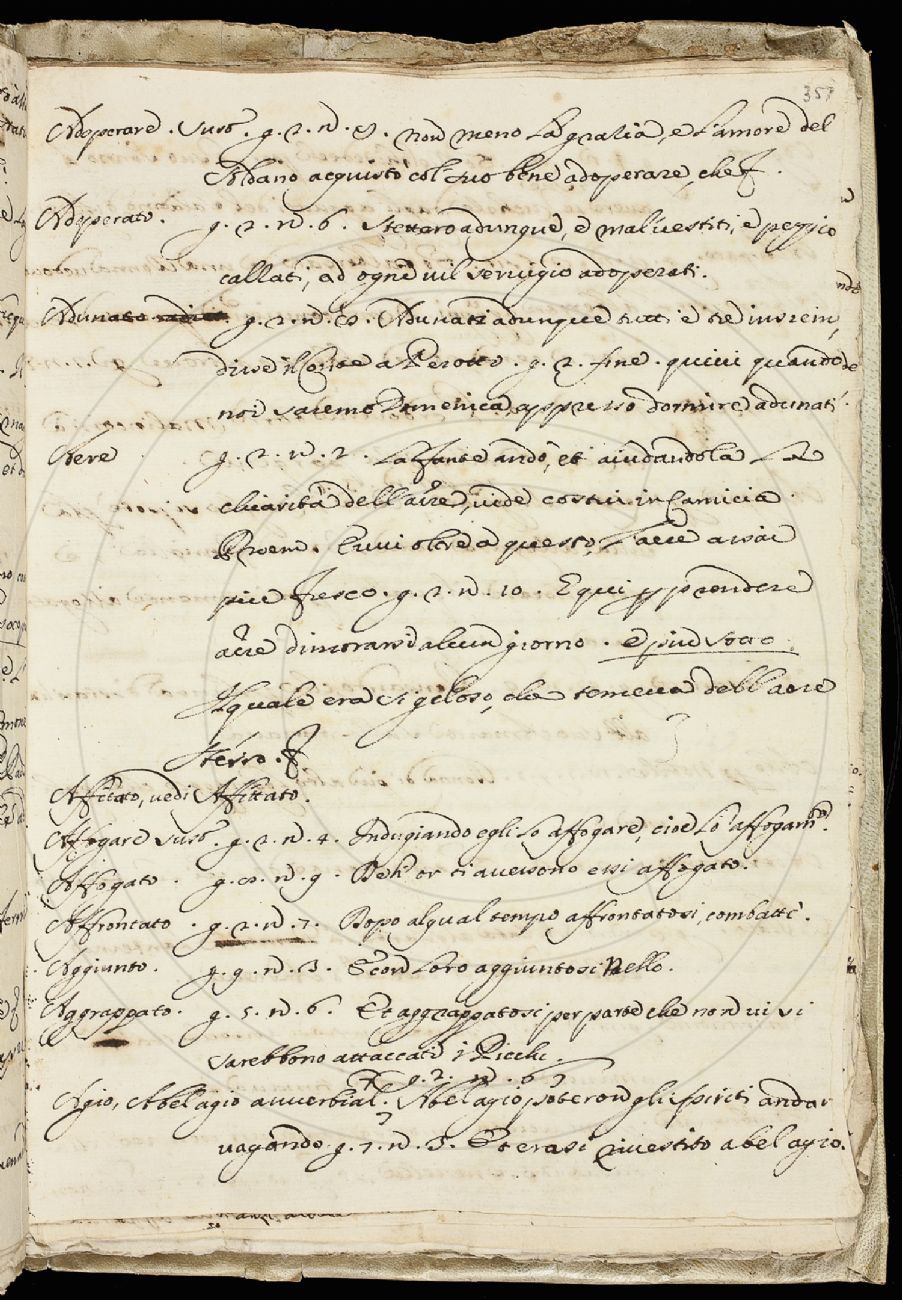 357
Adoperare. sust. g. 2. n. 8. non meno la gratia, e l'amore del
Aldano acquistò col suo bene adoperare, che
Adoperato. g. 2. n. 6. stettero adunque, e mal vestiti, e peggio
callati, ad ogne vil servigio adoperati.
Adunato g. 2. n. 8. Adunati adunque tutti e tre insiem,
disse il Conte a Perotto. g. 2. fine. quivi quando
noi saremo Domenica, appresso dormire adunati.
Aere g. 2. n. 2. La fante andò, et aiudandola La
chiarità dell'aire, vide costui in Camicia.
Proem. Evvi oltre a questo l'aere assai
piu fresco. g. 2. n. 10. E qui prendere
aere dimorarsi alcun giorno. e piu soto
Il quale era si geloso, che temeva dell'aere
stesso.
Affitato, vedi Affittato.
Affogare sust. g. 2. n. 4. Indugiando egli lo affogare, cioè lo affogam.to
Affogato. g. 8. n. 9. Deh or ti avessono essi affogato.
Affrontato. g. 2. n. 7. Dopo al qual tempo affrontatosi, combattè.
Aggiunto. g. 9. n. 3. E con loro aggiuntosi Nello.
Aggrappato. g. 5. n. 6. Et aggrappatosi per parte che non vi si
sarebbono attaccati i Picchi.
g. 2. n. 6
Agio, Abel agio avverbial. Abel agio poteron gli spiriti andar
vagando. g. 7. n. 3. Et erasi rivestito a bel agio.